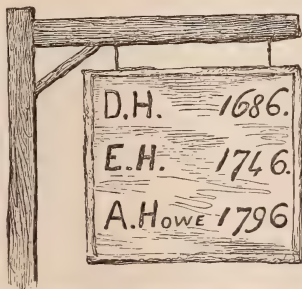 D.H. 1686.
E.H. 1746.
A.HOWE 1796